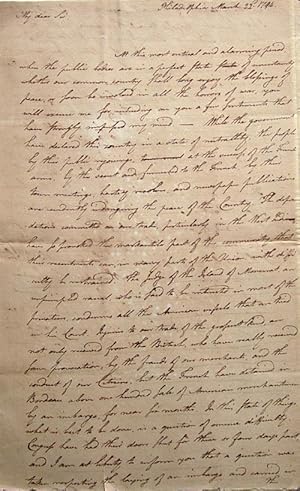 Philadelphia March 23d 1794
My dear Sir
At this most critical and alarming period
when the public bodies are in a perfect State of uncertainty
whether our common country shall long enjoy the blessings of
peace, or soon be involved in all the horrors of war, you
will excuse me for intruding on you a few sentiments that
have strongly impressed my mind — While the government
have declared this country in a state of neutrality the people
by this public rejoicings, at the success of the French
arms, by the secret aid furnished to the French, by their
town meetings, hasty resolves and newspaper publications
are evidently endangering the peace of the Country. The depre
dations committed on our trade, particularly in the West Indies
has so provoked the mercantile part of the community that
their resentments can in many parts of the Union with diffi
culty be restrained. The Judge of the Island of Monserat an
unprincipled rascal who is said to be interested in most of the
privateers, condemns all the American vessels that are tried
in his Court. Injuries to our trade of the grossest kind, are
not only received from the British, who have really received
some provocation, by the frauds of our merchants, and the
conduct of our Citizens, but the French have detained in
Bordeaux above one hundred sail of American merchantmen
by an embargo for near six months. In this State of things,
what is best to be done, is a question of serious difficulty.
Congress have had their doors shut for three or four days past
and I am at liberty to inform you that a question was
taken respecting the laying of an embargo and carried in
the